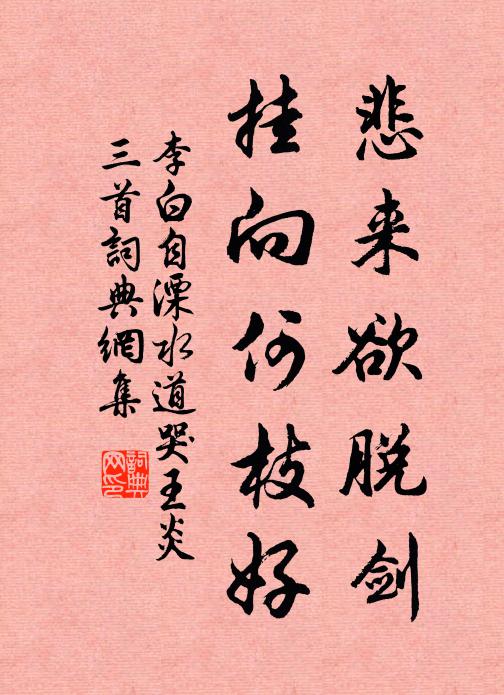 悲来欲脱剑
挂向何枝好
李白自溧水道哭王炎
三首詞典網集
詞典网印